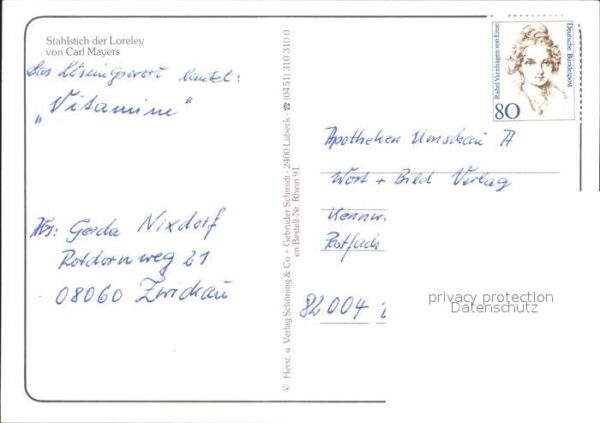 Stahlstich der Loreley
von Carl Mayers
Das Lösungswort lautet:
„Vitamine"
Abs: Gerda Nixdorf
Rotdornweg 21
08060 Zwickau
© Herst. u. Verlag Schöning & Co + Gebrüder Schmidt · 2400 Lübeck · ☎ (0451) 310 310 0
en Bestell-Nr. Rhein 91
Rahel Varnhagen von Ense
Deutsche Bundespost
80
Apotheken Umschau A
Wort + Bild Verlag
Kennw.
Postfach
82004
privacy protection
Datenschutz